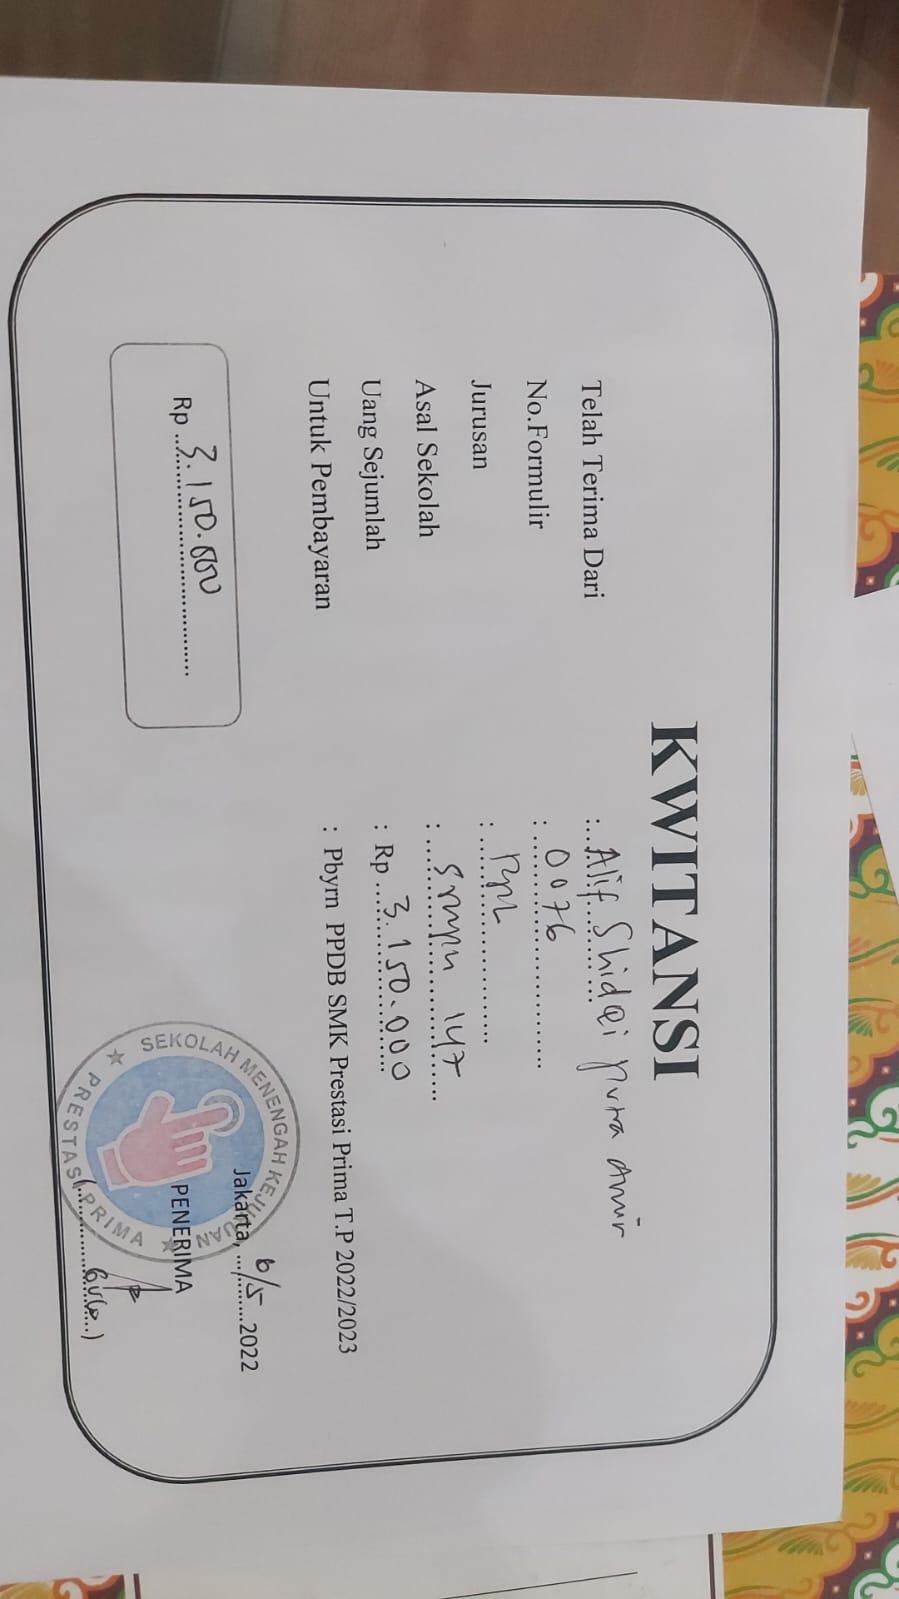 KWITANSI
Telah Terima Dari : Alif Shidqi putra Amir
No.Formulir : 0076
Jurusan : RPL
Asal Sekolah : SMPN 147
Uang Sejumlah : Rp 3.150.000
Untuk Pembayaran : Pbyrn PPDB SMK Prestasi Prima T.P 2022/2023
Rp 3.150.000
Jakarta, 6/5 2022
PENERIMA
SEKOLAH MENENGAH KEJURUAN
PRESTASI PRIMA